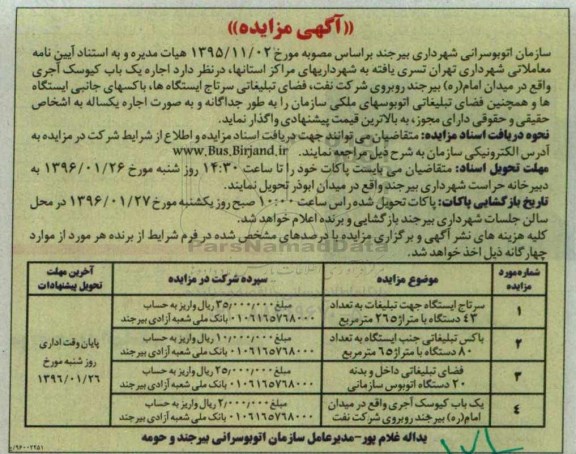 «آگهی مزایده»
سازمان اتوبوسرانی شهرداری بیرجند براساس مصوبه مورخ ۱۳۹۵/۱۱/۰۲ هیات مدیره و به استناد آیین نامه
معاملاتی شهرداری تهران تسری یافته به شهرداریهای مراکز استانها، درنظر دارد اجاره یک باب کیوسک آجری
واقع در میدان امام(ره) بیرجند روبروی شرکت نفت، فضای تبلیغاتی سرتاج ایستگاه ها، باکسهای جانبی ایستگاه
ها و همچنین فضای تبلیغاتی اتوبوسهای ملکی سازمان را به طور جداگانه و به صورت اجاره یکساله به اشخاص
حقیقی و حقوقی دارای مجوز، به بالاترین قیمت پیشنهادی واگذار نماید.
نحوه دریافت اسناد مزایده: متقاضیان می توانند جهت دریافت اسناد مزایده و اطلاع از شرایط شرکت در مزایده به
آدرس الکترونیکی سازمان به شرح ذیل مراجعه نمایند. www.Bus.Birjand.ir
مهلت تحویل اسناد: متقاضیان می بایست پاکات خود را تا ساعت ۱۴:۳۰ روز شنبه مورخ ۱۳۹۶/۰۱/۲۶ به
دبیرخانه حراست شهرداری بیرجند واقع در میدان ابوذر تحویل نمایند.
تاریخ بازگشایی پاکات: پاکات تحویل شده راس ساعت ۱۰:۰۰ صبح روز یکشنبه مورخ ۱۳۹۶/۰۱/۲۷ در محل
سالن جلسات شهرداری بیرجند بازگشایی و برنده اعلام خواهد شد.
کلیه هزینه های نشر آگهی و برگزاری مزایده با درصدهای مشخص شده در فرم شرایط از برنده هر مورد از موارد
چهارگانه ذیل اخذ خواهد شد.
ParsNamadData
شماره مورد مزایده | موضوع مزایده | سپرده شرکت در مزایده | آخرین مهلت تحویل پیشنهادات
۱ | سرتاج ایستگاه جهت تبلیغات به تعداد ۴۳ دستگاه با متراژ ۲۶۵ مترمربع | مبلغ ۳۵,۰۰۰,۰۰۰ ریال واریز به حساب ۰۱۰۶۱۶۵۷۶۸۰۰۰ بانک ملی شعبه آزادی بیرجند
۲ | باکس تبلیغاتی جنب ایستگاه به تعداد ۸۰ دستگاه با متراژ ۶۵ مترمربع | مبلغ ۱۰,۰۰۰,۰۰۰ ریال واریز به حساب ۰۱۰۶۱۶۵۷۶۸۰۰۰ بانک ملی شعبه آزادی بیرجند
۳ | فضای تبلیغاتی داخل و بدنه ۲۰ دستگاه اتوبوس سازمانی | مبلغ ۲۵,۰۰۰,۰۰۰ ریال واریز به حساب ۰۱۰۶۱۶۵۷۶۸۰۰۰ بانک ملی شعبه آزادی بیرجند
۴ | یک باب کیوسک آجری واقع در میدان امام(ره) بیرجند روبروی شرکت نفت | مبلغ ۲,۰۰۰,۰۰۰ ریال واریز به حساب ۰۱۰۶۱۶۵۷۶۸۰۰۰ بانک ملی شعبه آزادی بیرجند
پایان وقت اداری
روز شنبه مورخ
۱۳۹۶/۰۱/۲۶
یداله غلام پور-مدیرعامل سازمان اتوبوسرانی بیرجند و حومه